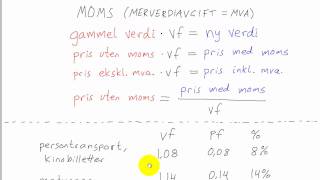 MOMS (MERVERDIAVGIFT = MVA)
gammel verdi · vf = ny verdi
pris uten moms · vf = pris med moms
pris ekskl. mva. · vf = pris inkl. mva.
pris uten moms = pris med moms
vf
vf pf %
persontransport, kinobilletter 1,08 0,08 8%
1,14 0,14 14%